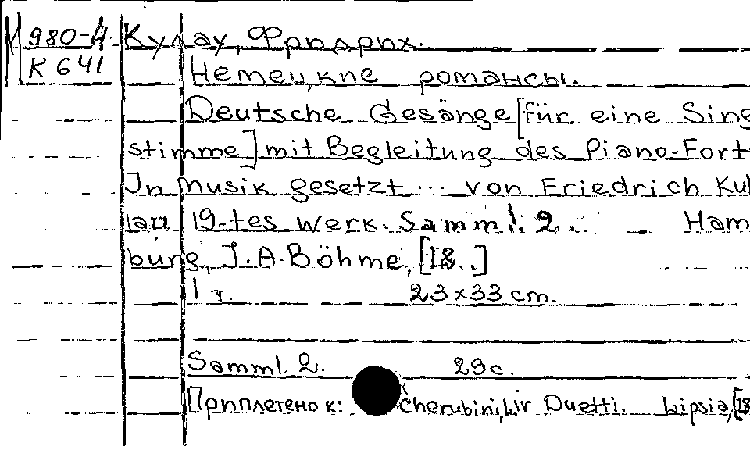 М 980-4 Кулау, Фридрих.
К 641 Немецкие романсы.
Deutsche Gesänge [für eine Sing
stimme] mit Begleitung des Piano-Fort
In Musik gesetzt ... von Friedrich Kuh
lau 19-tes Werk. Samml. 2... Ham
burg, J.A. Böhme, [18..]
1 т. 23x33 cm.
Samml. 2. 29 с.
Приплетено к: Cherubini, Duetti. Lipsia, [18